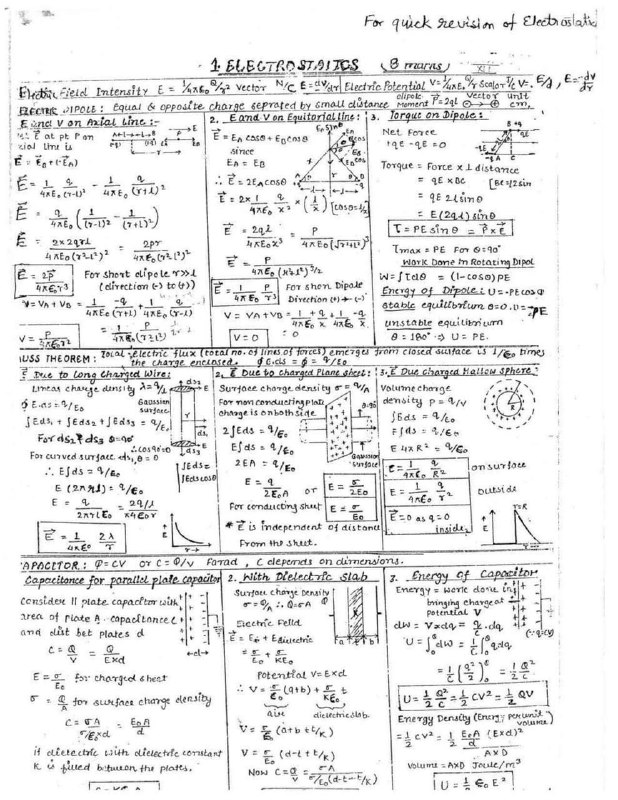 For quick revision of Electrostatic
1. ELECTROSTATICS (8 marks) XII
Electric Field Intensity E = 1/4πε₀ Q/r² vector N/C E = dV/dr Electric Potential V = 1/4πε₀ Q/r Scalar J/C V=. E/A, E = -dv/dr
ELECTRIC DIPOLE: Equal & opposite charge seprated by small distance dipole Moment P=2ql Vector unit cm,
E and V on Axial Line:-
E at pt P on
axial line is
E = E₀ + (-E_A)
E = 1/4πε₀ q/(r-l)² - 1/4πε₀ q/(r+l)²
E = q/4πε₀ (1/(r-l)² - 1/(r+l)²)
E = 2×2qrl/4πε₀(r²-l²)² = 2pr/4πε₀(r²-l²)²
E = 2p/4πε₀r³ For short dipole r>>l
(direction (-) to (+))
V = V_A + V_B = 1/4πε₀ -q/(r+l) + 1/4πε₀ q/(r-l)
V = P/4πε₀r² = 1/4πε₀ P/(r²-l²)
2. E and V on Equitorial line:
E = E_A cosθ + E_B cosθ
since
E_A = E_B
∴ E = 2E_A cosθ
E = 2×1/4πε₀ q/x² × (l/x) [cosθ=l/x]
E = 2ql/4πε₀x³ = P/4πε₀(√r²+l²)³
E = P/4πε₀(r²+l²)^3/2
E = 1/4πε₀ P/r³ For short Dipole
Direction (+) → (-)
V = VA + VB = 1/4πε₀ +q/x + 1/4πε₀ -q/x
V = 0 = 0
3. Torque on Dipole:-
Net Force
+qE -qE = 0
Torque = Force x ⊥ distance
= qE × BC [BC=2l sin
= qE 2l sinθ
= E(2ql) sinθ
τ = PE sinθ = P×E
τmax = PE For θ=90°
Work Done in Rotating Dipol
W = ∫τdθ = (1-cosθ)PE
Energy of Dipole: U = -PE cosθ
stable equilibrium θ=0. U=-PE
unstable equilibrium
θ = 180° ⇒ U = PE.
USS THEOREM: Total electric flux (total no. of lines of forces) emerges from closed surface is 1/ε₀ times
the charge enclosed. ∮E.ds = φ = q/ε₀
E Due to Long Charged Wire:
Linear charge density λ = q/l
∮E.ds = q/ε₀ Gaussian surface
∫Eds₁ + ∫Eds₂ + ∫Eds₃ = q/ε₀
For ds₂ & ds₃ θ=90°
∴ cos90=0
For curved surface ds₁ θ = 0
∴ E∫ds = q/ε₀ ∫Eds = ∫Edscosθ
E (2πrl) = q/ε₀
E = q/2πrlε₀ = 2q/l/4πε₀r
E = 1/4πε₀ 2λ/r
2. E Due to charged Plane sheet:
Surface charge density σ = q/A
For non conducting plate
charge is on both side θ=90
2∫Eds = q/ε₀
E∫ds = q/ε₀
2EA = q/ε₀ Gaussian Surface
E = q/2ε₀A or E = σ/2ε₀
For conducting sheet E = σ/ε₀
* E is independent of distance
From the sheet.
3. E Due Charged Hallow Sphere:
Volume charge
density ρ = q/V
∫Eds = q/ε₀
E∫ds = q/ε₀
E 4πR² = q/ε₀
E = 1/4πε₀ q/R² on surface
E = 1/4πε₀ q/r² outside
E=0 as q=0 inside.
APACITOR: Q=CV or C=Q/V Farad, C depends on dimensions.
Capacitance for parallel plate capacitor
Consider II plate capacitor with
area of plate A capacitance C
and dist bet plates d
C = Q/V = Q/E×d
E = σ/ε₀ for charged sheet
σ = Q/A for surface charge density
C = σA/σ/ε₀×d = ε₀A/d
If dielectric with dielectric constant
K is filled between the plates.
2. With Dielectric Slab
Surface charge Density
σ = Q/A ∴ Q=σA
Electric Feild
E = E₀ + E dielectric
= σ/ε₀ + σ/Kε₀
Potential V=E×d
∴ V = σ/ε₀ (a+b) + σ/Kε₀ t
air dielectric slab
V = σ/ε₀ (a+b+t/K)
V = σ/ε₀ (d-t+t/K)
Now C=Q/V = σA/σ/ε₀(d-t-t/K)
3. Energy of Capacitor
Energy = work done in
bringing charge at
potential V
dW = V×dq = q/c.dq
U = ∫dW = 1/C ∫q dq
= 1/C (q²/2) = 1/2 Q²/C
U = 1/2 Q²/C = 1/2 CV² = 1/2 QV
Energy Density (Energy per unit volume)
= 1/2 CV² = 1/2 ε₀A/d (E×d)²/A×D
Volume = A×D Joule/m³
U = 1/2 ε₀ E²